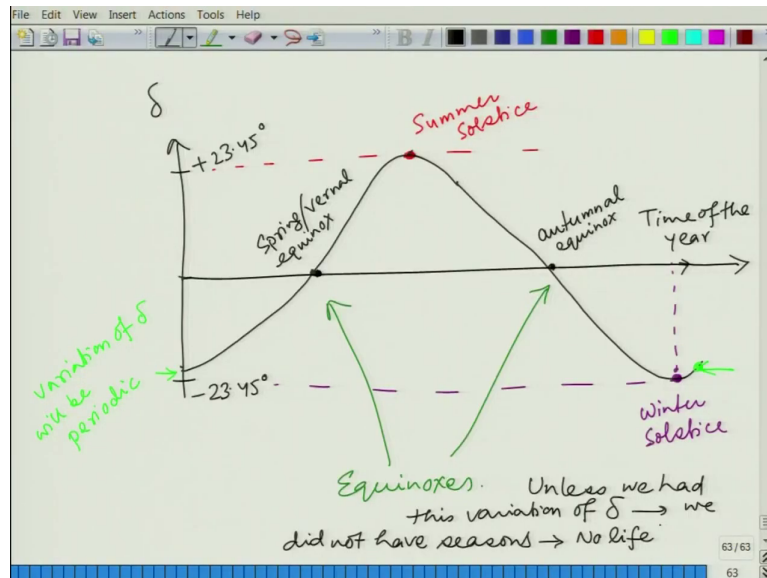 File Edit View Insert Actions Tools Help
B I
δ
+23.45°
Summer
Solstice
Spring/vernal
equinox
autumnal
equinox
Time of the
year
variation of δ
will be
periodic
-23.45°
Winter
Solstice
Equinoxes.
Unless we had
this variation of δ → we
did not have seasons → No life
63/63
63